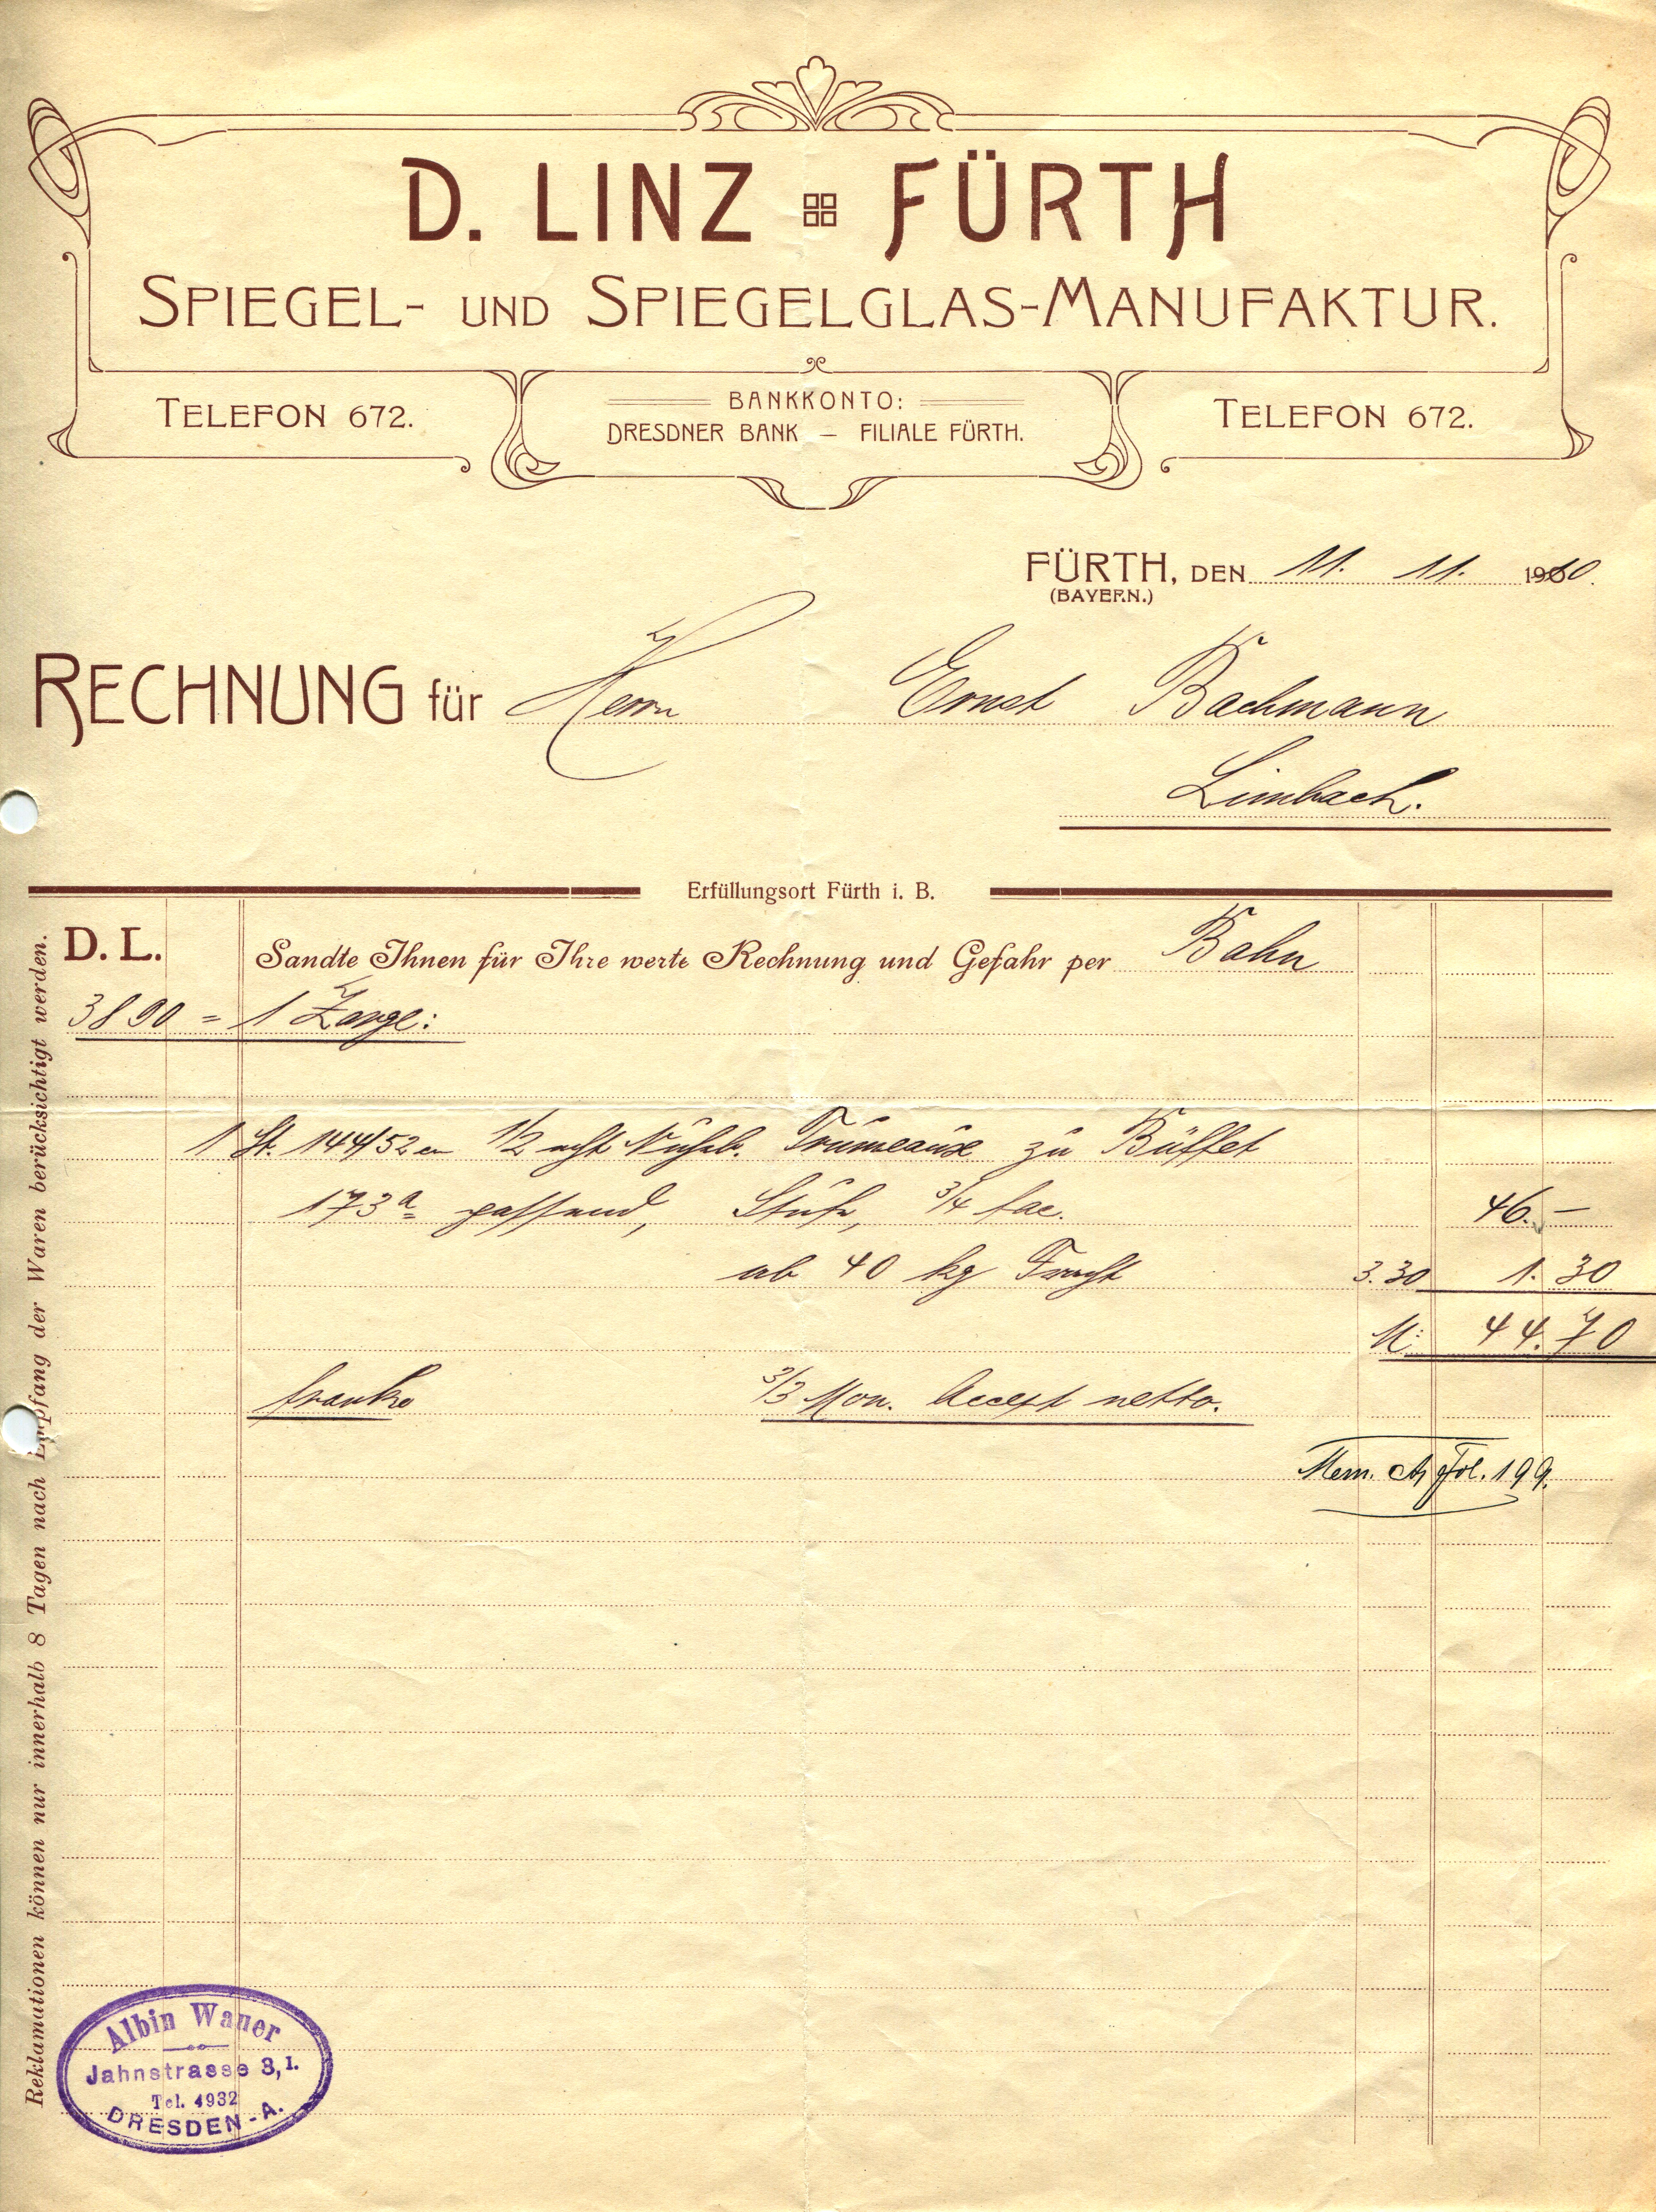 D. LINZ FÜRTH
SPIEGEL- UND SPIEGELGLAS-MANUFAKTUR.
TELEFON 672.
BANKKONTO:
DRESDNER BANK — FILIALE FÜRTH.
TELEFON 672.
FÜRTH, DEN 11. 11. 1910.
(BAYERN.)
RECHNUNG für Herrn Ernst Bachmann
Limbach.
Erfüllungsort Fürth i. B.
D. L. Sandte Ihnen für Ihre werte Rechnung und Gefahr per Bahn
3890 = 1 Zarge:
1 St. 144/52 cm 1/2 acht Nußb. Trümeaux zu Büffet
173a passend, Stufe, 3/4 fac. 46.—
ab 40 kg Fracht 3.30 1.30
M: 44.70
franko 3/3 Mon. Accept netto.
Mem. Fol. 199.
Reklamationen können nur innerhalb 8 Tagen nach Empfang der Waren berücksichtigt werden.
Albin Wauer
Jahnstrasse 3, I.
Tel. 4932
DRESDEN-A.